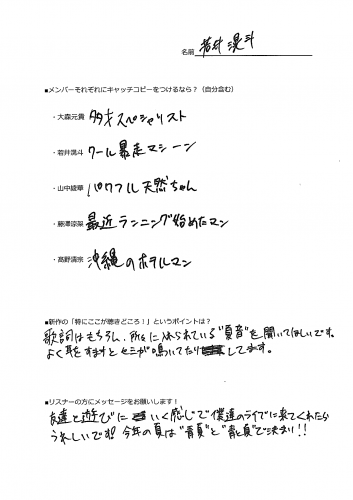 名前 若井滉斗
■メンバーそれぞれにキャッチコピーをつけるなら？（自分含む）
・大森元貴 多才スペシャリスト
・若井滉斗 クール暴走マシーン
・山中綾華 パワフル天然ちゃん
・藤澤涼架 最近ランニング始めたマン
・髙野清宗 沖縄のホテルマン
■新作の「特にここが聴きどころ！」というポイントは？
歌詞はもちろん、所々に入れられている"夏音"を聞いてほしいです。
よく耳をすますとセミが鳴いてたりしてます。
■リスナーの方にメッセージをお願いします！
友達と遊びにいく感じで僕達のライブに来てくれたら
うれしいです！今年の夏は"青夏"と"青と夏"で決まり！！